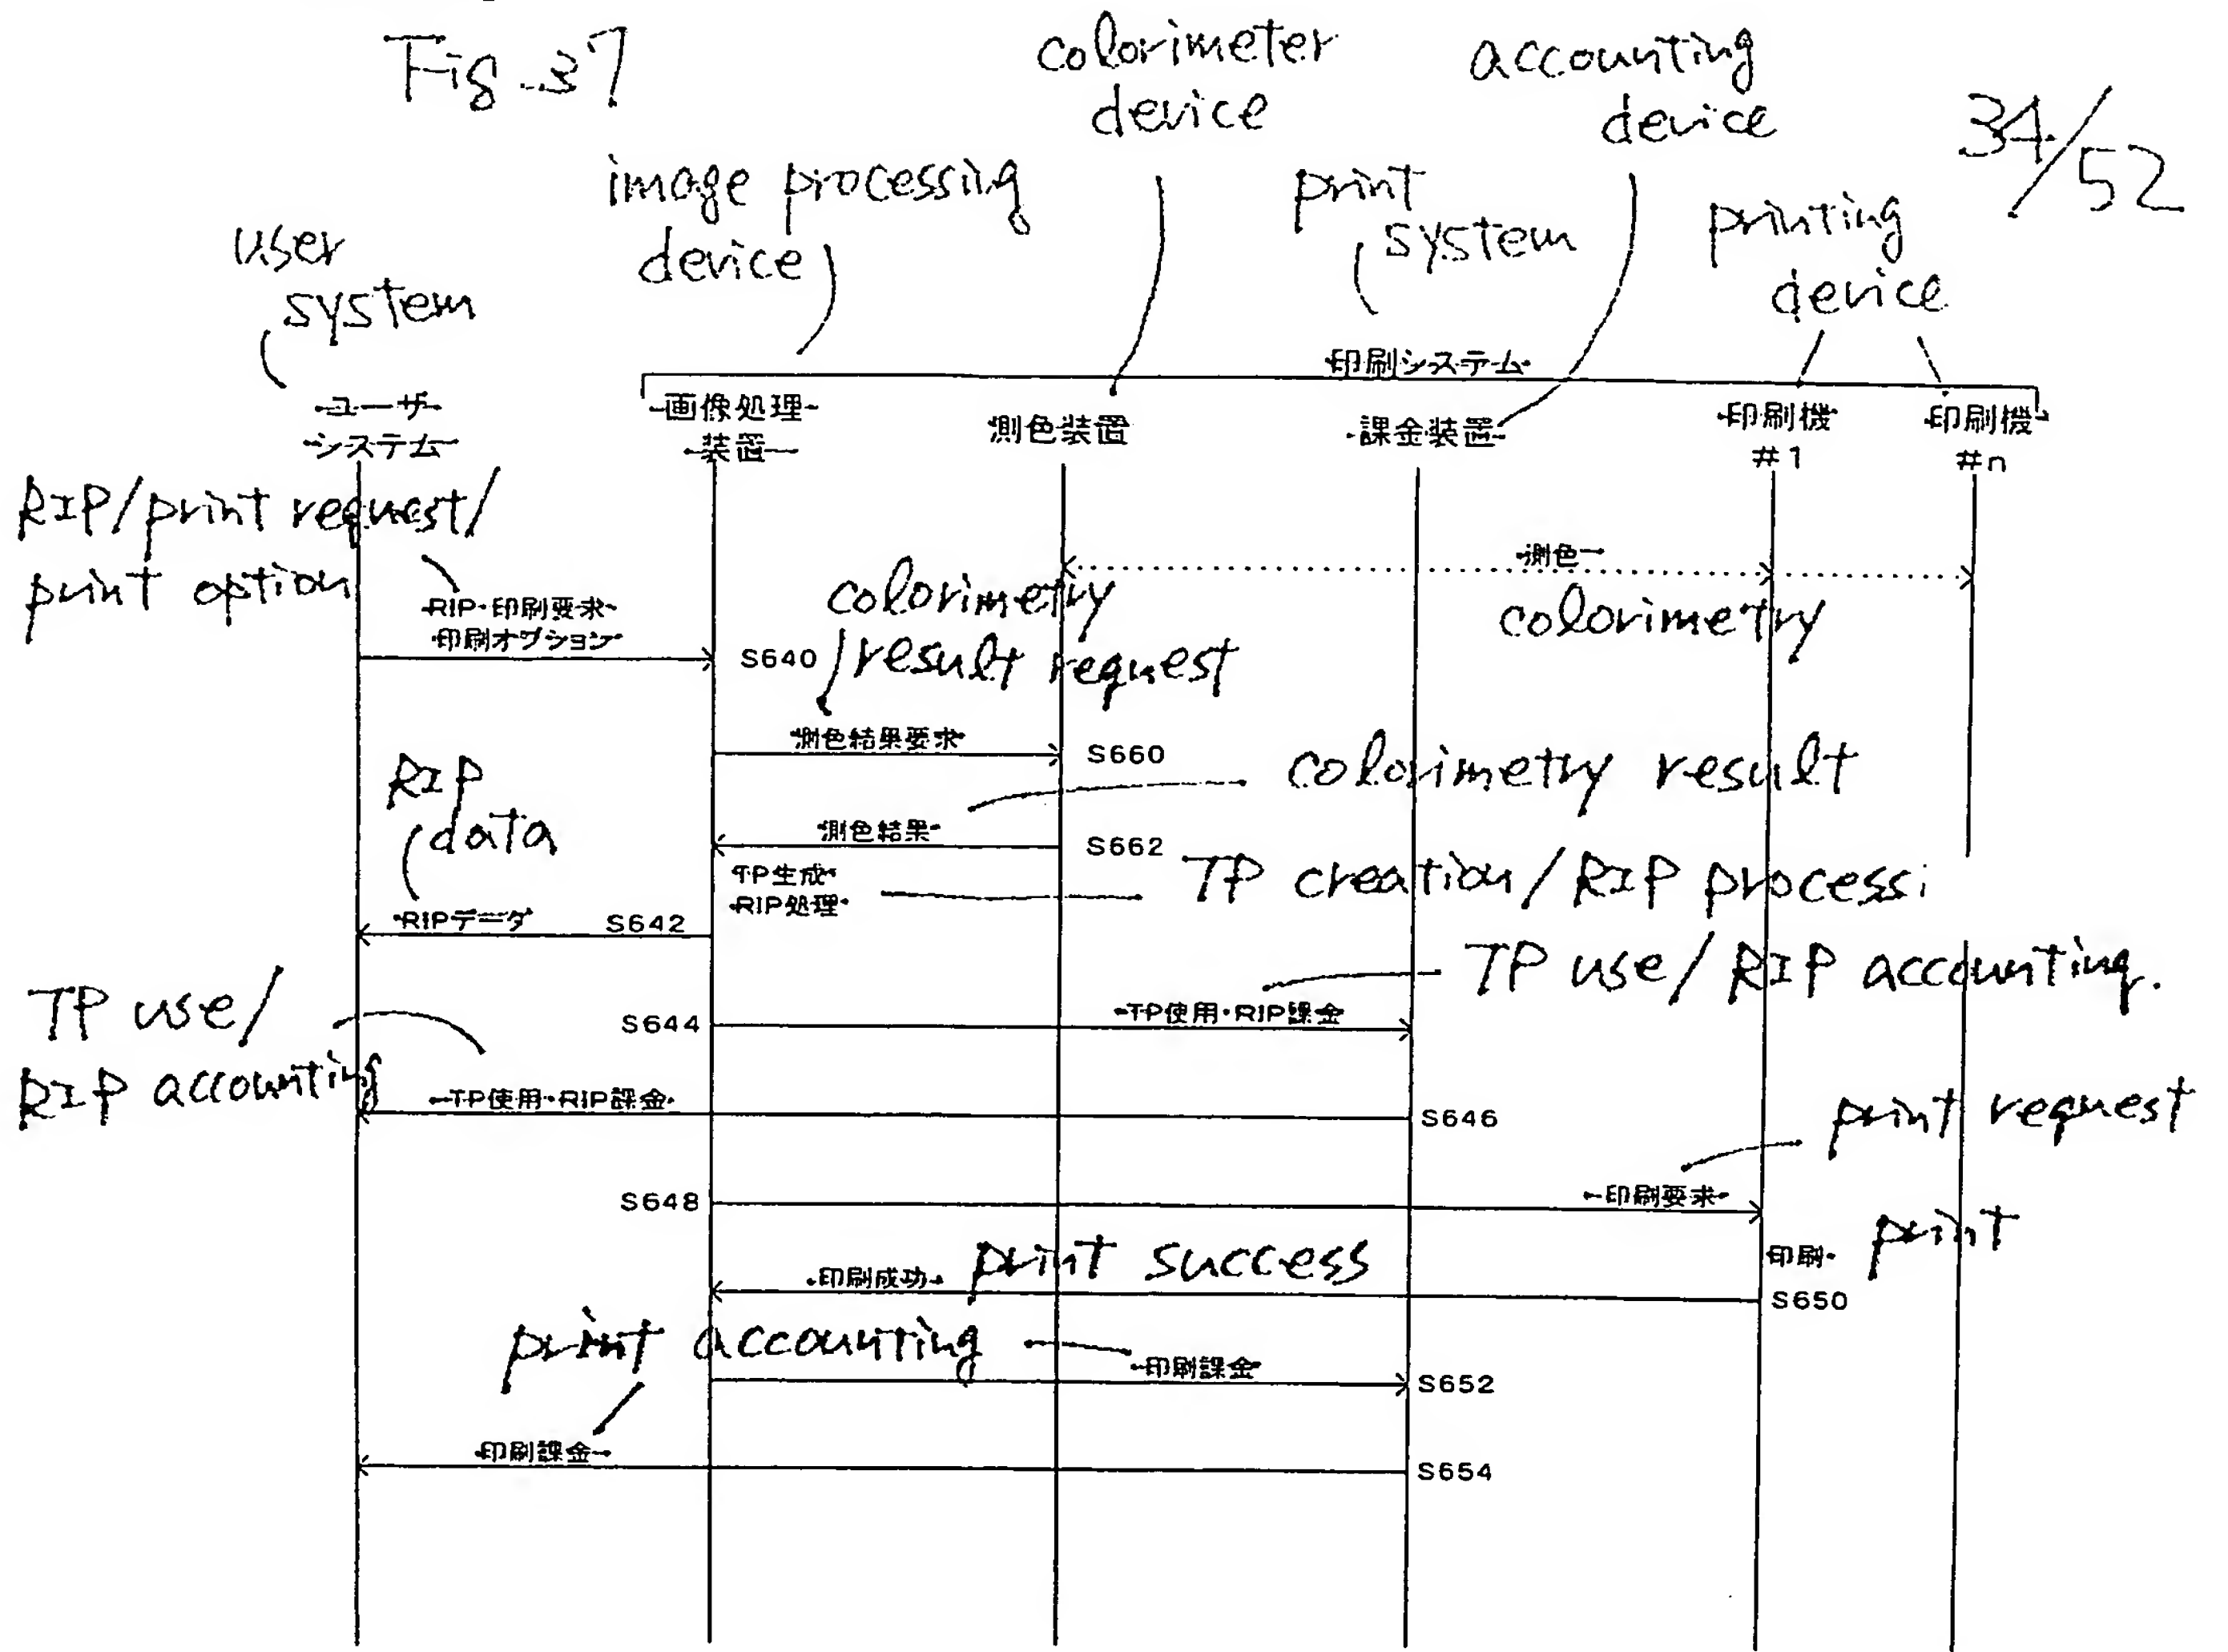 Fig. 37
34/52
colorimeter
device
accounting
device
image processing
device
print
system
printing
device
user
system
印刷システム
ユーザ
システム
画像処理
装置
測色装置
課金装置
印刷機
#1
印刷機
#n
RIP/print request/
print option
測色
colorimetry
RIP・印刷要求
印刷オプション
S640
colorimetry
result request
測色結果要求
S660
colorimetry result
RIP
data
測色結果
S662
TP生成
RIP処理
TP creation/RIP processi
RIPデータ
S642
TP use/RIP accounting.
S644
TP使用・RIP課金
TP use/
RIP accounting
TP使用・RIP課金
S646
print request
S648
印刷要求
印刷
print
印刷成功
print success
S650
print accounting
印刷課金
S652
印刷課金
S654